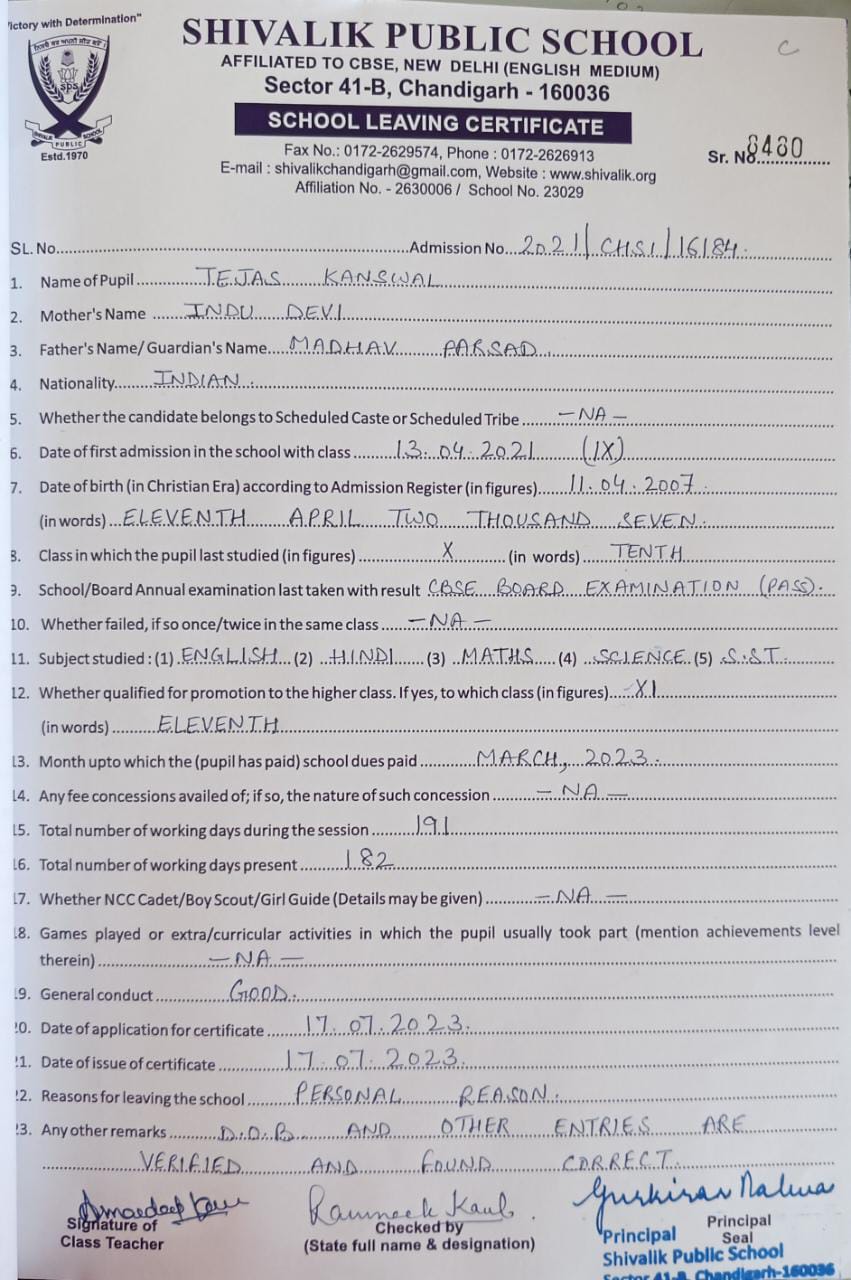 "Victory with Determination"
SHIVALIK PUBLIC SCHOOL
C
AFFILIATED TO CBSE, NEW DELHI (ENGLISH MEDIUM)
Sector 41-B, Chandigarh - 160036
SPS
SHIVALIK PUBLIC SCHOOL
Estd.1970
SCHOOL LEAVING CERTIFICATE
Fax No.: 0172-2629574, Phone : 0172-2626913
Sr. No. 8480
E-mail : shivalikchandigarh@gmail.com, Website : www.shivalik.org
Affiliation No. - 2630006 / School No. 23029
SL. No. Admission No. 2021/CHSI/16184.
1. Name of Pupil TEJAS KANSWAL
2. Mother's Name INDU DEVI
3. Father's Name/ Guardian's Name MADHAV PARSAD.
4. Nationality INDIAN.
5. Whether the candidate belongs to Scheduled Caste or Scheduled Tribe -NA-
6. Date of first admission in the school with class 13.04.2021 (IX)
7. Date of birth (in Christian Era) according to Admission Register (in figures) 11.04.2007.
(in words) ELEVENTH APRIL TWO THOUSAND SEVEN.
8. Class in which the pupil last studied (in figures) X (in words) TENTH
9. School/Board Annual examination last taken with result CBSE BOARD EXAMINATION (PASS).
10. Whether failed, if so once/twice in the same class -NA-
11. Subject studied : (1) ENGLISH (2) HINDI (3) MATHS (4) SCIENCE (5) S.ST.
12. Whether qualified for promotion to the higher class. If yes, to which class (in figures) XI
(in words) ELEVENTH
13. Month upto which the (pupil has paid) school dues paid MARCH, 2023.
14. Any fee concessions availed of; if so, the nature of such concession -NA-
15. Total number of working days during the session 191
16. Total number of working days present 182
17. Whether NCC Cadet/Boy Scout/Girl Guide (Details may be given) -NA-
18. Games played or extra/curricular activities in which the pupil usually took part (mention achievements level
therein) -NA-
19. General conduct GOOD.
20. Date of application for certificate 17.07.2023.
21. Date of issue of certificate 17.07.2023.
22. Reasons for leaving the school PERSONAL REASON.
23. Any other remarks D.O.B AND OTHER ENTRIES ARE
VERIFIED AND FOUND CORRECT.
Amardeep Kaur Ramneek Kaul. Gurkiran Nalwa
Signature of Class Teacher
Checked by
(State full name & designation)
Principal
Seal
Principal
Shivalik Public School
Sector 41-B, Chandigarh-160036